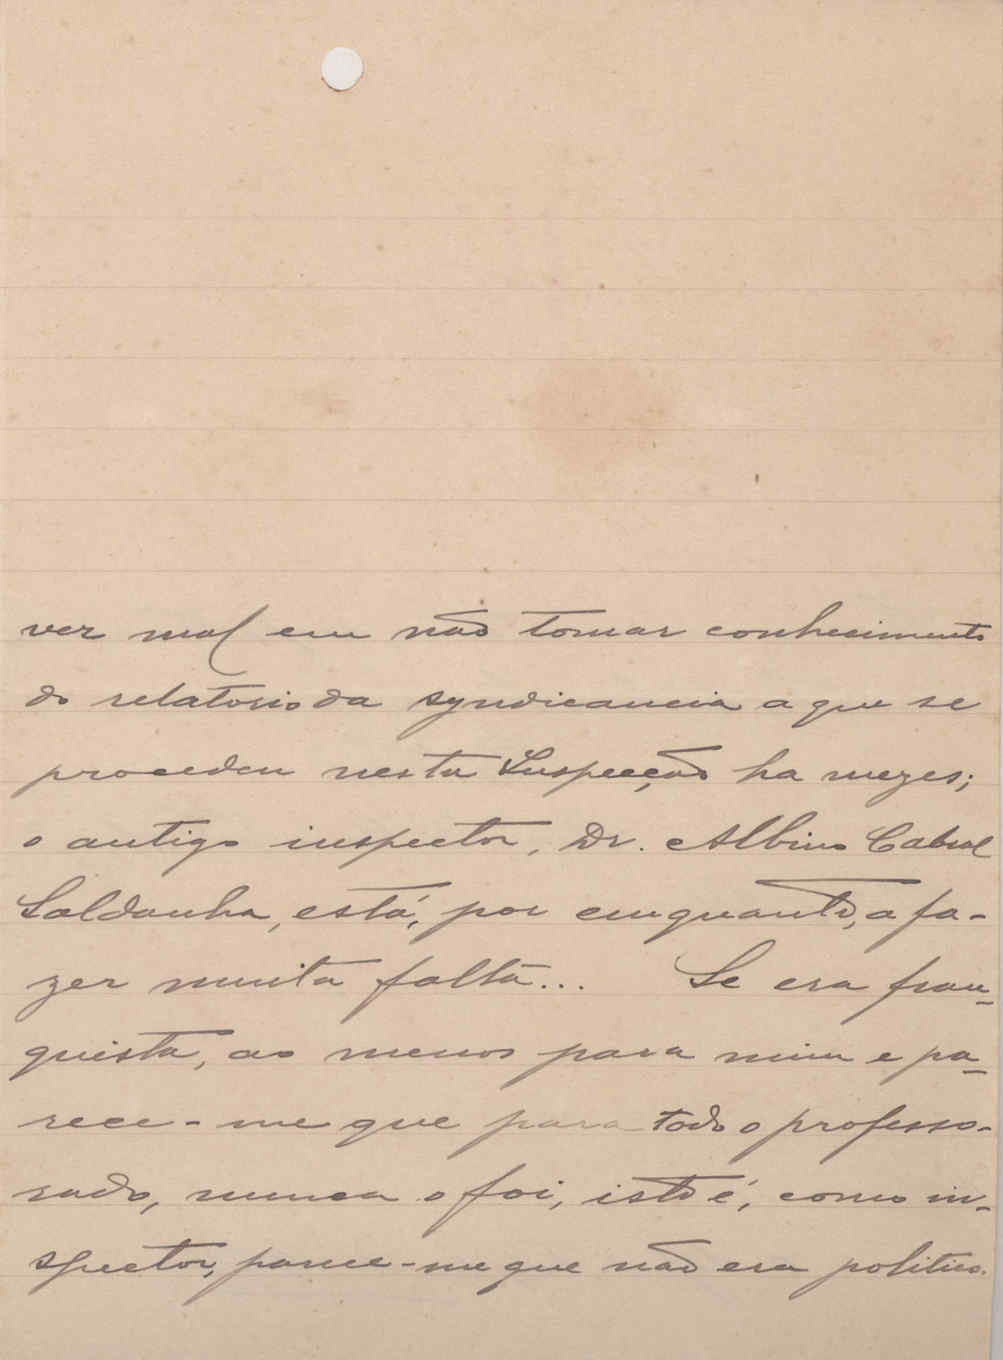 ver mal em não tomar conhecimento
do relatorio da syndicancia a que se
procedeu nesta Inspecção ha mezes;
o antigo inspector, Dr. Albino Cabral
Saldanha, está, por emquanto, a fa-
zer muita falta... Se era fran-
quista, ao menos para mim e pa-
rece-me que para todo o professo-
rado, nunca o foi, isto é, como in-
spector, parece-me que não era politico.